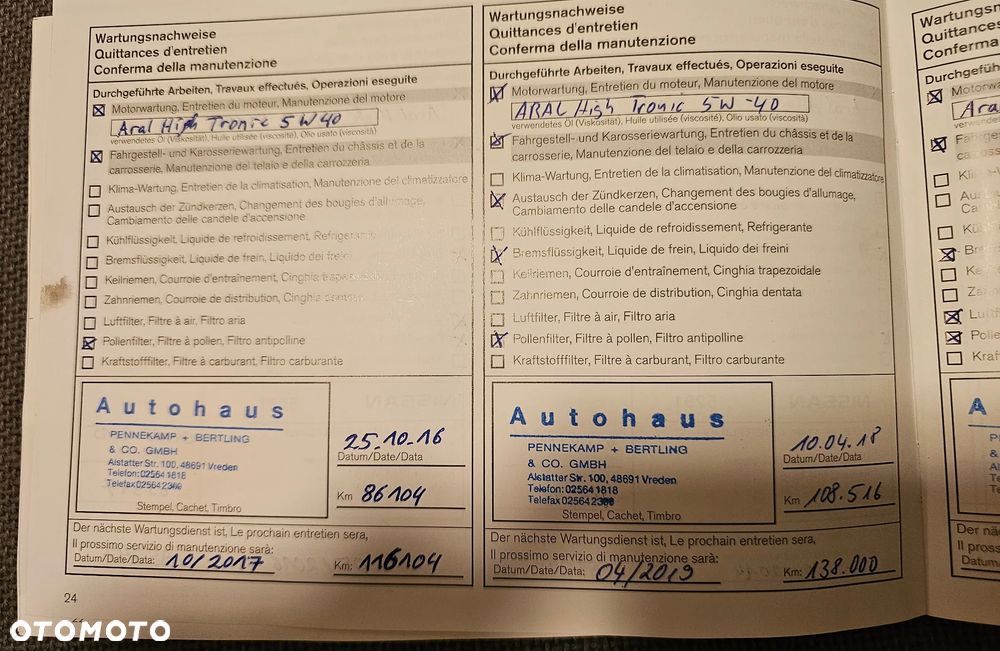 Wartungsnachweise
Quittances d'entretien
Conferma della manutenzione
Durchgeführte Arbeiten, Travaux effectués, Operazioni eseguite
Motorwartung, Entretien du moteur, Manutenzione del motore
Aral High Tronic 5W40
verwendetes Öl (Viskosität), Huile utilisée (viscosité), Olio usato (viscosità)
Fahrgestell- und Karosseriewartung, Entretien du châssis et de la
carrosserie, Manutenzione del telaio e della carrozzeria
Klima-Wartung, Entretien de la climatisation, Manutenzione del climatizzatore
Austausch der Zündkerzen, Changement des bougies d'allumage,
Cambiamento delle candele d'accensione
Kühlflüssigkeit, Liquide de refroidissement, Refrigerante
Bremsflüssigkeit, Liquide de frein, Liquido dei freini
Keilriemen, Courroie d'entraînement, Cinghia trapezoidale
Zahnriemen, Courroie de distribution, Cinghia dentata
Luftfilter, Filtre à air, Filtro aria
Pollenfilter, Filtre à pollen, Filtro antipolline
Kraftstofffilter, Filtre à carburant, Filtro carburante
Autohaus
PENNEKAMP + BERTLING
& CO. GMBH
Alstatter Str. 100, 48691 Vreden
Telefon: 02564 1818
Telefax 02564 2300
Stempel, Cachet, Timbro
25.10.16
Datum/Date/Data
Km 86104
Der nächste Wartungsdienst ist, Le prochain entretien sera,
Il prossimo servizio di manutenzione sarà:
Datum/Date/Data: 10/2017 Km: 116104
24
Wartungsnachweise
Quittances d'entretien
Conferma della manutenzione
Durchgeführte Arbeiten, Travaux effectués, Operazioni eseguite
Motorwartung, Entretien du moteur, Manutenzione del motore
ARAL High Tronic 5W-40
verwendetes Öl (Viskosität), Huile utilisée (viscosité), Olio usato (viscosità)
Fahrgestell- und Karosseriewartung, Entretien du châssis et de la
carrosserie, Manutenzione del telaio e della carrozzeria
Klima-Wartung, Entretien de la climatisation, Manutenzione del climatizzatore
Austausch der Zündkerzen, Changement des bougies d'allumage,
Cambiamento delle candele d'accensione
Kühlflüssigkeit, Liquide de refroidissement, Refrigerante
Bremsflüssigkeit, Liquide de frein, Liquido dei freini
Keilriemen, Courroie d'entraînement, Cinghia trapezoidale
Zahnriemen, Courroie de distribution, Cinghia dentata
Luftfilter, Filtre à air, Filtro aria
Pollenfilter, Filtre à pollen, Filtro antipolline
Kraftstofffilter, Filtre à carburant, Filtro carburante
Autohaus
PENNEKAMP + BERTLING
& CO. GMBH
Alstatter Str. 100, 48691 Vreden
Telefon: 02564 1818
Telefax 02564 2300
Stempel, Cachet, Timbro
10.04.18
Datum/Date/Data
Km 108.516
Der nächste Wartungsdienst ist, Le prochain entretien sera,
Il prossimo servizio di manutenzione sarà:
Datum/Date/Data: 04/2019 Km: 138.000
OTOMOTO